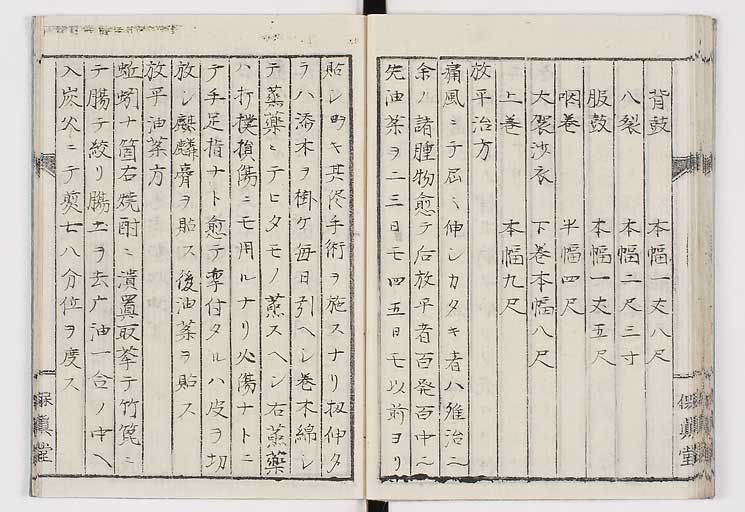 背鼓 本幅一丈八尺
八裂 本幅二尺三寸
股鼓 本幅一丈五尺
咽巻 半幅四尺
大袈沙衣 下巻本幅八尺
上巻 本幅九尺
放平治方
痛風ミテ屈ミ伸シカタキ者ハ難治ニ
余ノ諸腫物愈テ后放平者百発百中ニ
先油薬ヲ二三日モ四五日モ以前ヨリ
貼シ置キ其后手術ヲ施スナリ扨伸タ
ラハ添木ヲ掛ケ毎日引ヘシ巻木綿シ
テ蒸薬ミテヒタモノ蒸スヘシ右蒸薬
ハ打撲損傷ニモ用ルナリ火傷ナトニ
テ手足指ナト愈テ牽付タルハ皮ヲ切
放シ麒麟膏ヲ貼ス後油薬ヲ貼ス
放平油薬方
蚯蚓十箇右焼酎ニ漬置取挙テ竹箆ニ
テ腸テ絞リ腸土ヲ去广油一合ノ中ヘ
入炭火ニテ煎七八分位ヲ度ス
保眞堂
保眞堂